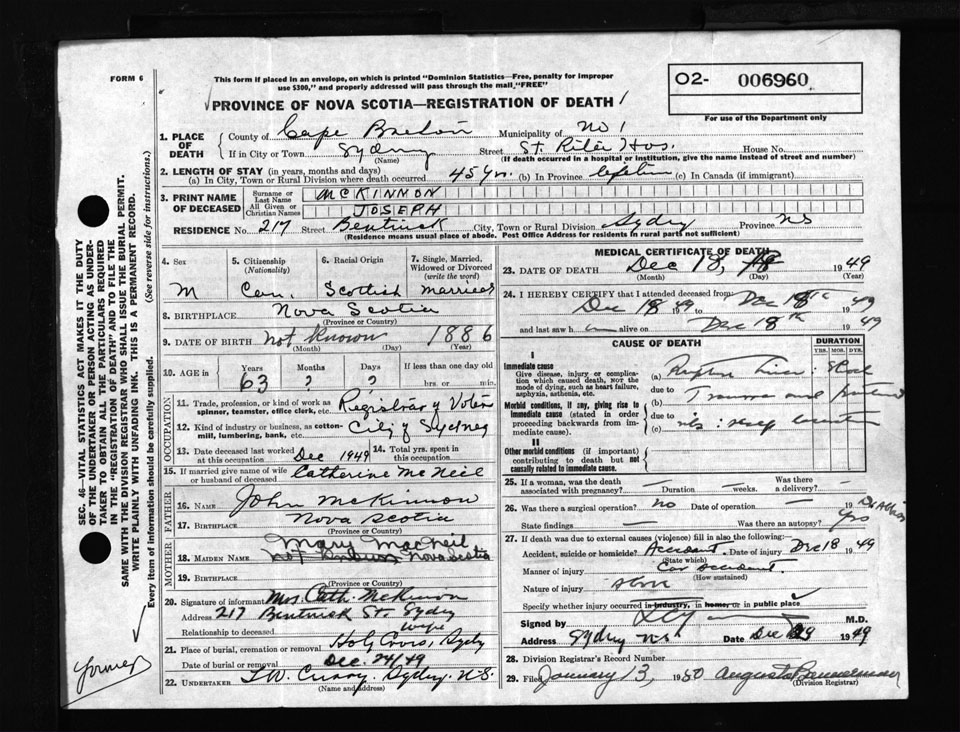 FORM 6
This form if placed in an envelope, on which is printed "Dominion Statistics—Free, penalty for improper
use $300," and properly addressed will pass through the mail, "FREE"
O2- 006960
For use of the Department only
PROVINCE OF NOVA SCOTIA—REGISTRATION OF DEATH
1. PLACE OF DEATH
County of Cape Breton Municipality of No 1
If in City or Town Sydney Street St. Rita Hos. House No.
(Name) (If death occurred in a hospital or institution, give the name instead of street and number)
2. LENGTH OF STAY (in years, months and days)
(a) In City, Town or Rural Division where death occurred 45 yrs. (b) In Province lifetime (c) In Canada (if immigrant)
3. PRINT NAME OF DECEASED
Surname or Last Name McKINNON
All Given or Christian Names JOSEPH
RESIDENCE No. 217 Street Bentinck City, Town or Rural Division Sydney Province NS
(Residence means usual place of abode. Post Office Address for residents in rural parts not sufficient)
4. Sex 5. Citizenship (Nationality) 6. Racial Origin 7. Single, Married, Widowed or Divorced (write the word)
M Can. Scottish married
8. BIRTHPLACE Nova Scotia
(Province or Country)
9. DATE OF BIRTH not known 1886
(Month) (Day) (Year)
10. AGE in Years Months Days If less than one day old
63 ? ? hrs. or min.
OCCUPATION
11. Trade, profession or kind of work as spinner, teamster, office clerk, etc. Registrar of Voters
12. Kind of industry or business, as cotton-mill, lumbering, bank, etc. City of Sydney
13. Date deceased last worked at this occupation Dec 1949 14. Total yrs. spent in this occupation
15. If married give name of wife or husband of deceased Catherine McNeil
FATHER
16. Name John McKinnon
17. Birthplace Nova Scotia
(Province or Country)
MOTHER
Mary MacNeil
18. Maiden Name Nova Scotia
19. Birthplace
(Province or Country)
20. Signature of informant Mrs. Cath. McKinnon
Address 217 Bentinck St. Sydney
Relationship to deceased wife
21. Place of burial, cremation or removal Holy Cross, Sydney
Date of burial or removal Dec. 24/49
22. UNDERTAKER T.W. Curry. Sydney. N.S.
(Name and address)
MEDICAL CERTIFICATE OF DEATH
23. DATE OF DEATH Dec 18, 1949
(Month) (Day) (Year)
24. I HEREBY CERTIFY that I attended deceased from Dec 18th 1949
Dec 18 1949
and last saw h alive on Dec 18th 1949
CAUSE OF DEATH DURATION
YRS. MOS. DYS.
I
Immediate cause
Give disease, injury or complication which caused death, NOT the mode of dying, such as heart failure, asphyxia, asthenia, etc.
(a) Shock
due to
(b) Trauma and
Morbid conditions, if any, giving rise to immediate cause (stated in order proceeding backwards from immediate cause).
due to
(c)
II
Other morbid conditions (if important) contributing to death but not causally related to immediate cause.
25. If a woman, was the death associated with pregnancy? — Duration — weeks. Was there a delivery? —
26. Was there a surgical operation? no Date of operation 19
State findings — Was there an autopsy? Yes
27. If death was due to external causes (violence) fill in also the following:
Accident, suicide or homicide? Accident. Date of injury Dec 18 1949
(State which)
Manner of injury Car accident.
(How sustained)
Nature of injury above
Specify whether injury occurred in industry, in home, or in public place
Signed by M.D.
Address Sydney NS Date Dec 1949
28. Division Registrar's Record Number
29. Filed January 13, 1950
(Division Registrar)
SEC. 46—VITAL STATISTICS ACT MAKES IT THE DUTY
OF THE UNDERTAKER OR PERSON ACTING AS UNDER-
TAKER TO OBTAIN ALL THE PARTICULARS REQUIRED
IN THE "REGISTRATION OF DEATH" AND TO FILE THE
SAME WITH THE DIVISION REGISTRAR WHO SHALL ISSUE THE BURIAL PERMIT.
WRITE PLAINLY WITH UNFADING INK. THIS IS A PERMANENT RECORD.
Every item of information should be carefully supplied. (See reverse side for instructions.)